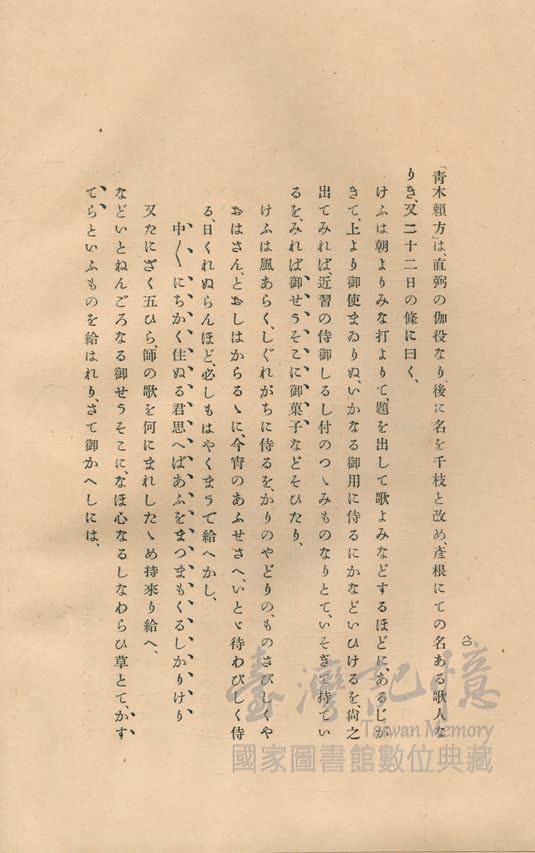 「靑木賴方」は、直弼の伽役なり、後に名を千枝と改め、彥根にての名ある歌人な
りき、又二十二日の條に曰く、
けふは朝よりみな打よりて、題を出して歌よみなどするほどに、あるじが
きて、上より御使まゐりぬ、いかなる御用に侍るにかなどいひけるを、尙之
出てみれば、近習の侍御しるし付のつゝみものなりとて、いそぎ持てい
るを、みれば御せうそこに御菓子などそひたり、
けふは風あらく、しぐれがちに侍るを、かりのやどりの、ものさびしくや
おはさん、とおしはからるゝに、今宵のあふせさへ、いとゞ待わびしく侍
る、日くれぬらんほど、必しもはやくまうで給へかし、
中〳〵にちかく住ぬる君思へばあふをまつまもくるしかりけり
又たにざく五ひら、師の歌を何にまれしたゝめ持來り給へ、
などいとねんごろなる御せうそこに、なほ心なるしなわらひ草とて、かす
てらといふものを給はれり、さて御かへしには、
八〇
臺灣記憶
Taiwan Memory
國家圖書館數位典藏